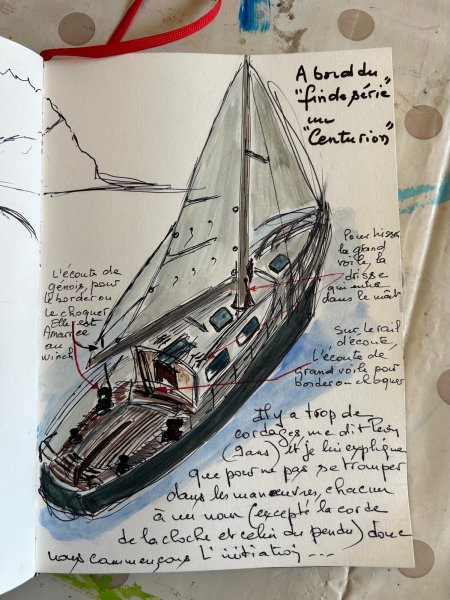 A bord du
"fin de série"
un
"Centurion"
Pour hisser
la grand
voile, la
drisse
qui
dans le mât
L'écoute de
génois, pour
le border ou
le choquer
Elle est
Amarrée
au
winch
sur le rail
d'écoute,
L'écoute de
grand voile pour
border ou choquer
Il y a trop de
cordages, me dit
(7 ans) et je lui explique
que pour ne pas se tromper
dans les manœuvres, chacun
à un nom (excepté la corde
de la cloche et celui du pendu) donc
nous commençons L'initiation ...